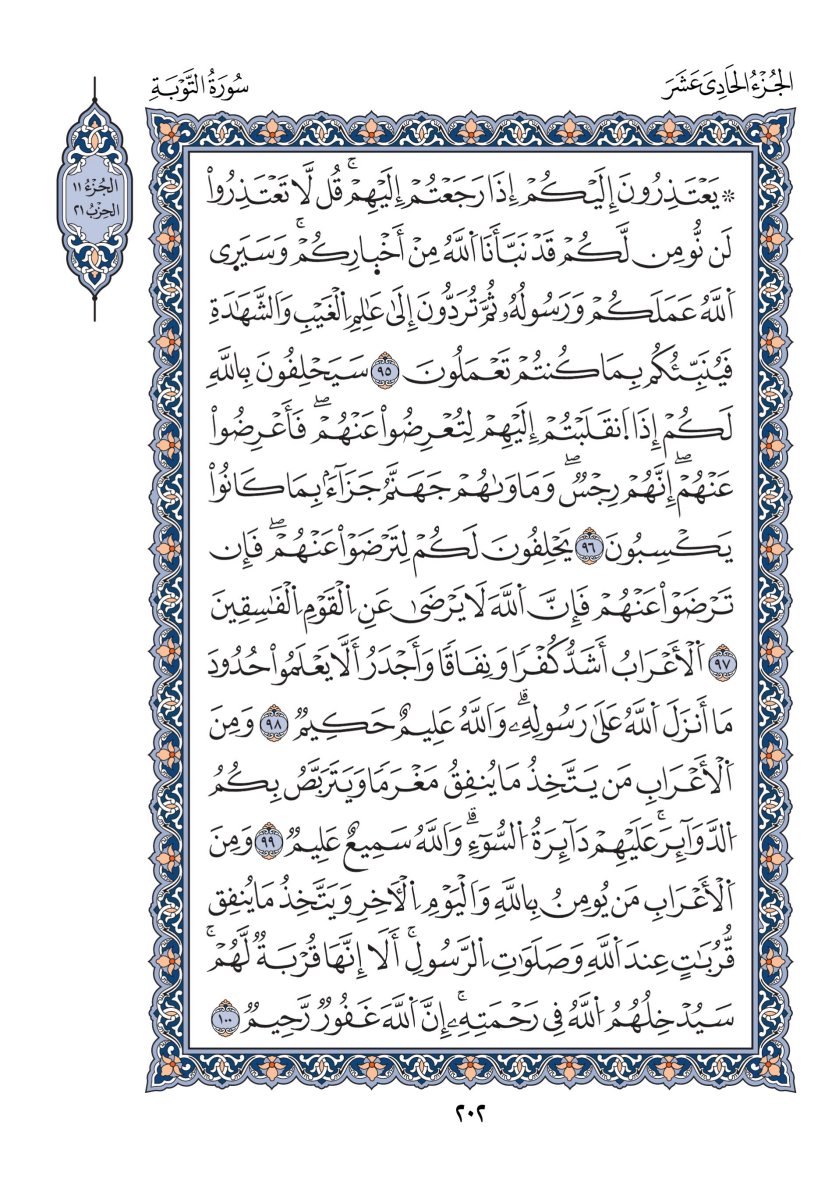 الجُزْءُ الحَادِىَ عَشَرَ
سُورَةُ التَّوۡبَةِ
الجُزْءُ ١١
الحِزْبُ ٢١
۞ يَعۡتَذِرُونَ إِلَيۡكُمۡ إِذَا رَجَعۡتُمۡ إِلَيۡهِمۡۚ قُل لَّا تَعۡتَذِرُواْ
لَن نُّومِن لَّكُمۡ قَدۡ نَبَّأَنَا اَللَّهُ مِنۡ أَخۡبِارِكُمۡۚ وَسَيَرَى
اَللَّهُ عَمَلَكُمۡ وَرَسُولُهُۥ ثُمَّ تُرَدُّونَ إِلَىٰ عَٰلِمِ اِلۡغَيۡبِ وَالشَّهَٰدَةِ
فَيُنَبِّئُكُم بِمَا كُنتُمۡ تَعۡمَلُونَ ٩٥ سَيَحۡلِفُونَ بِاللَّهِ
لَكُمۡ إِذَا اَنقَلَبۡتُمۡ إِلَيۡهِمۡ لِتُعۡرِضُواْ عَنۡهُمۡۖ فَأَعۡرِضُواْ
عَنۡهُمۡۖ إِنَّهُمۡ رِجۡسٞۖ وَمَاوَىٰهُمۡ جَهَنَّمُ جَزَآءَۢ بِمَا كَانُواْ
يَكۡسِبُونَ ٩٦ يَحۡلِفُونَ لَكُمۡ لِتَرۡضَوۡاْ عَنۡهُمۡۖ فَإِن
تَرۡضَوۡاْ عَنۡهُمۡ فَإِنَّ اَللَّهَ لَا يَرۡضَىٰ عَنِ اِلۡقَوۡمِ اِلۡفَٰسِقِينَ
٩٧ اَلۡأَعۡرَابُ أَشَدُّ كُفۡرٗا وَنِفَاقٗا وَأَجۡدَرُ أَلَّا يَعۡلَمُواْ حُدُودَ
مَا أَنزَلَ اَللَّهُ عَلَىٰ رَسُولِهِۦۗ وَاللَّهُ عَلِيمٌ حَكِيمٞ ٩٨ وَمِنَ
اَلۡأَعۡرَابِ مَن يَتَّخِذُ مَا يُنفِقُ مَغۡرَمٗا وَيَتَرَبَّصُ بِكُمُ
اُلدَّوَآئِرَۚ عَلَيۡهِمۡ دَآئِرَةُ اُلسُّوٓءِۗ وَاللَّهُ سَمِيعٌ عَلِيمٞ ٩٩ وَمِنَ
اَلۡأَعۡرَابِ مَن يُومِنُ بِاللَّهِ وَالۡيَوۡمِ اِلۡأٓخِرِ وَيَتَّخِذُ مَا يُنفِقُ
قُرُبَٰتٍ عِندَ اَللَّهِ وَصَلَوَٰتِ اِلرَّسُولِۚ أَلَا إِنَّهَا قُرۡبَةٞ لَّهُمۡۚ
سَيُدۡخِلُهُمُ اُللَّهُ فِي رَحۡمَتِهِۦۚ إِنَّ اَللَّهَ غَفُورٞ رَّحِيمٞ ١٠٠
٢٠٢